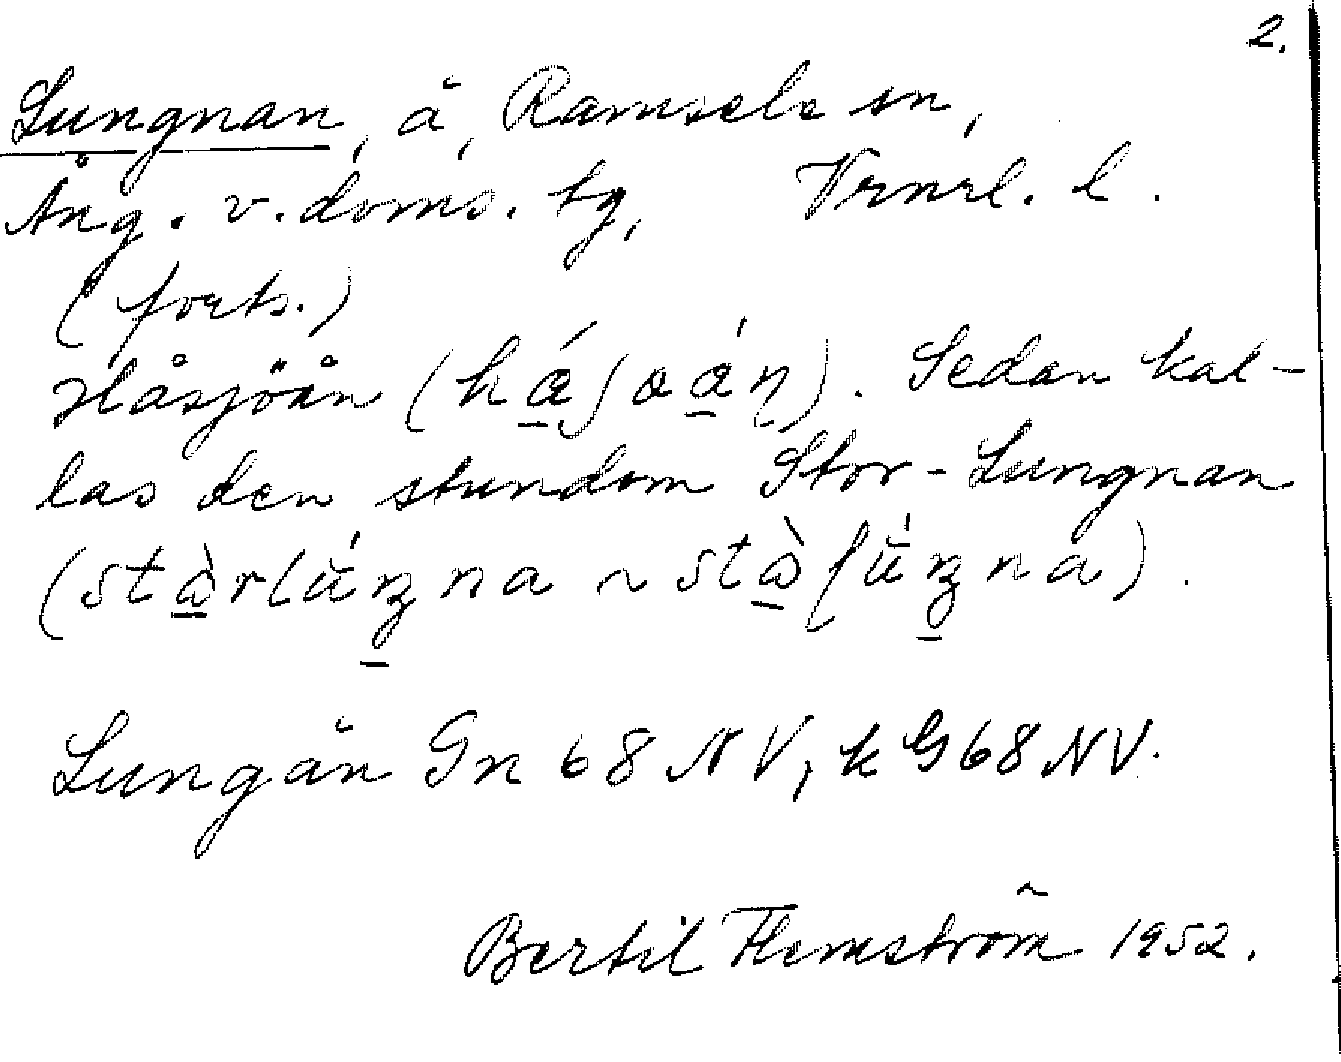 2.
Lungnan, å, Ramsele sn,
Ång. v. doms. tg, Vrnrl. l.
(forts.)
Håsjöån (
). Sedan kal-
las den stundom Stor-Lungnan
Lungån Gn 68 NV, k G 68 NV.
Bertil Flemström 1952.